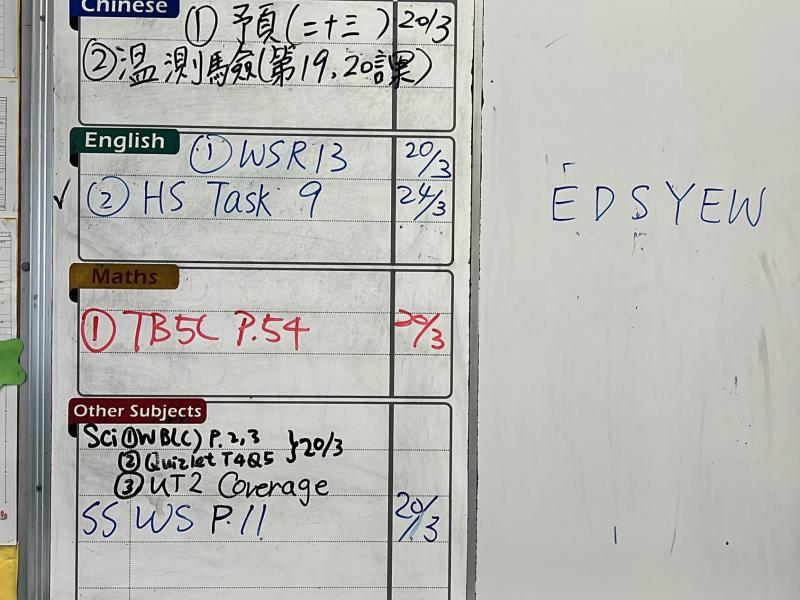 Chinese
① 予頁(二十三) 20/3
② 溫測馬僉(第19,20課)
English
① WSR13 20/3
✓ ② HS Task 9 24/3
Maths
① TB5C P.54 20/3
Other Subjects
Sci ① WB(C) P.2,3 } 20/3
② Quizlet T4Q5
③ UT2 Coverage
SS WS P.11 20/3
EDSYEW